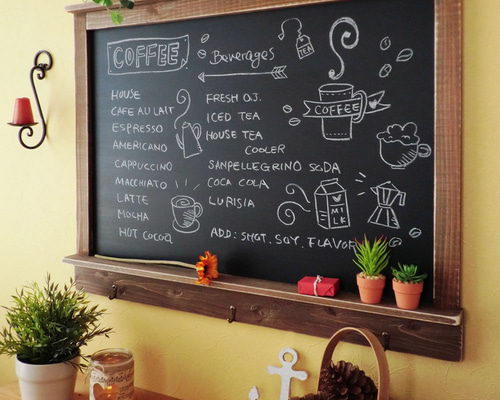 COFFEE
HOUSE
CAFE AU LAIT
ESPRESSO
AMERICANO
CAPPUCCINO
MACCHIATO
LATTE
MOCHA
HOT COCOA
Beverages
FRESH O.J.
ICED TEA
HOUSE TEA
COOLER
SANPELLEGRINO SODA
COCA COLA
LURISIA
ADD: SHOT, SOY, FLAVOR
TEA
COFFEE
MILK